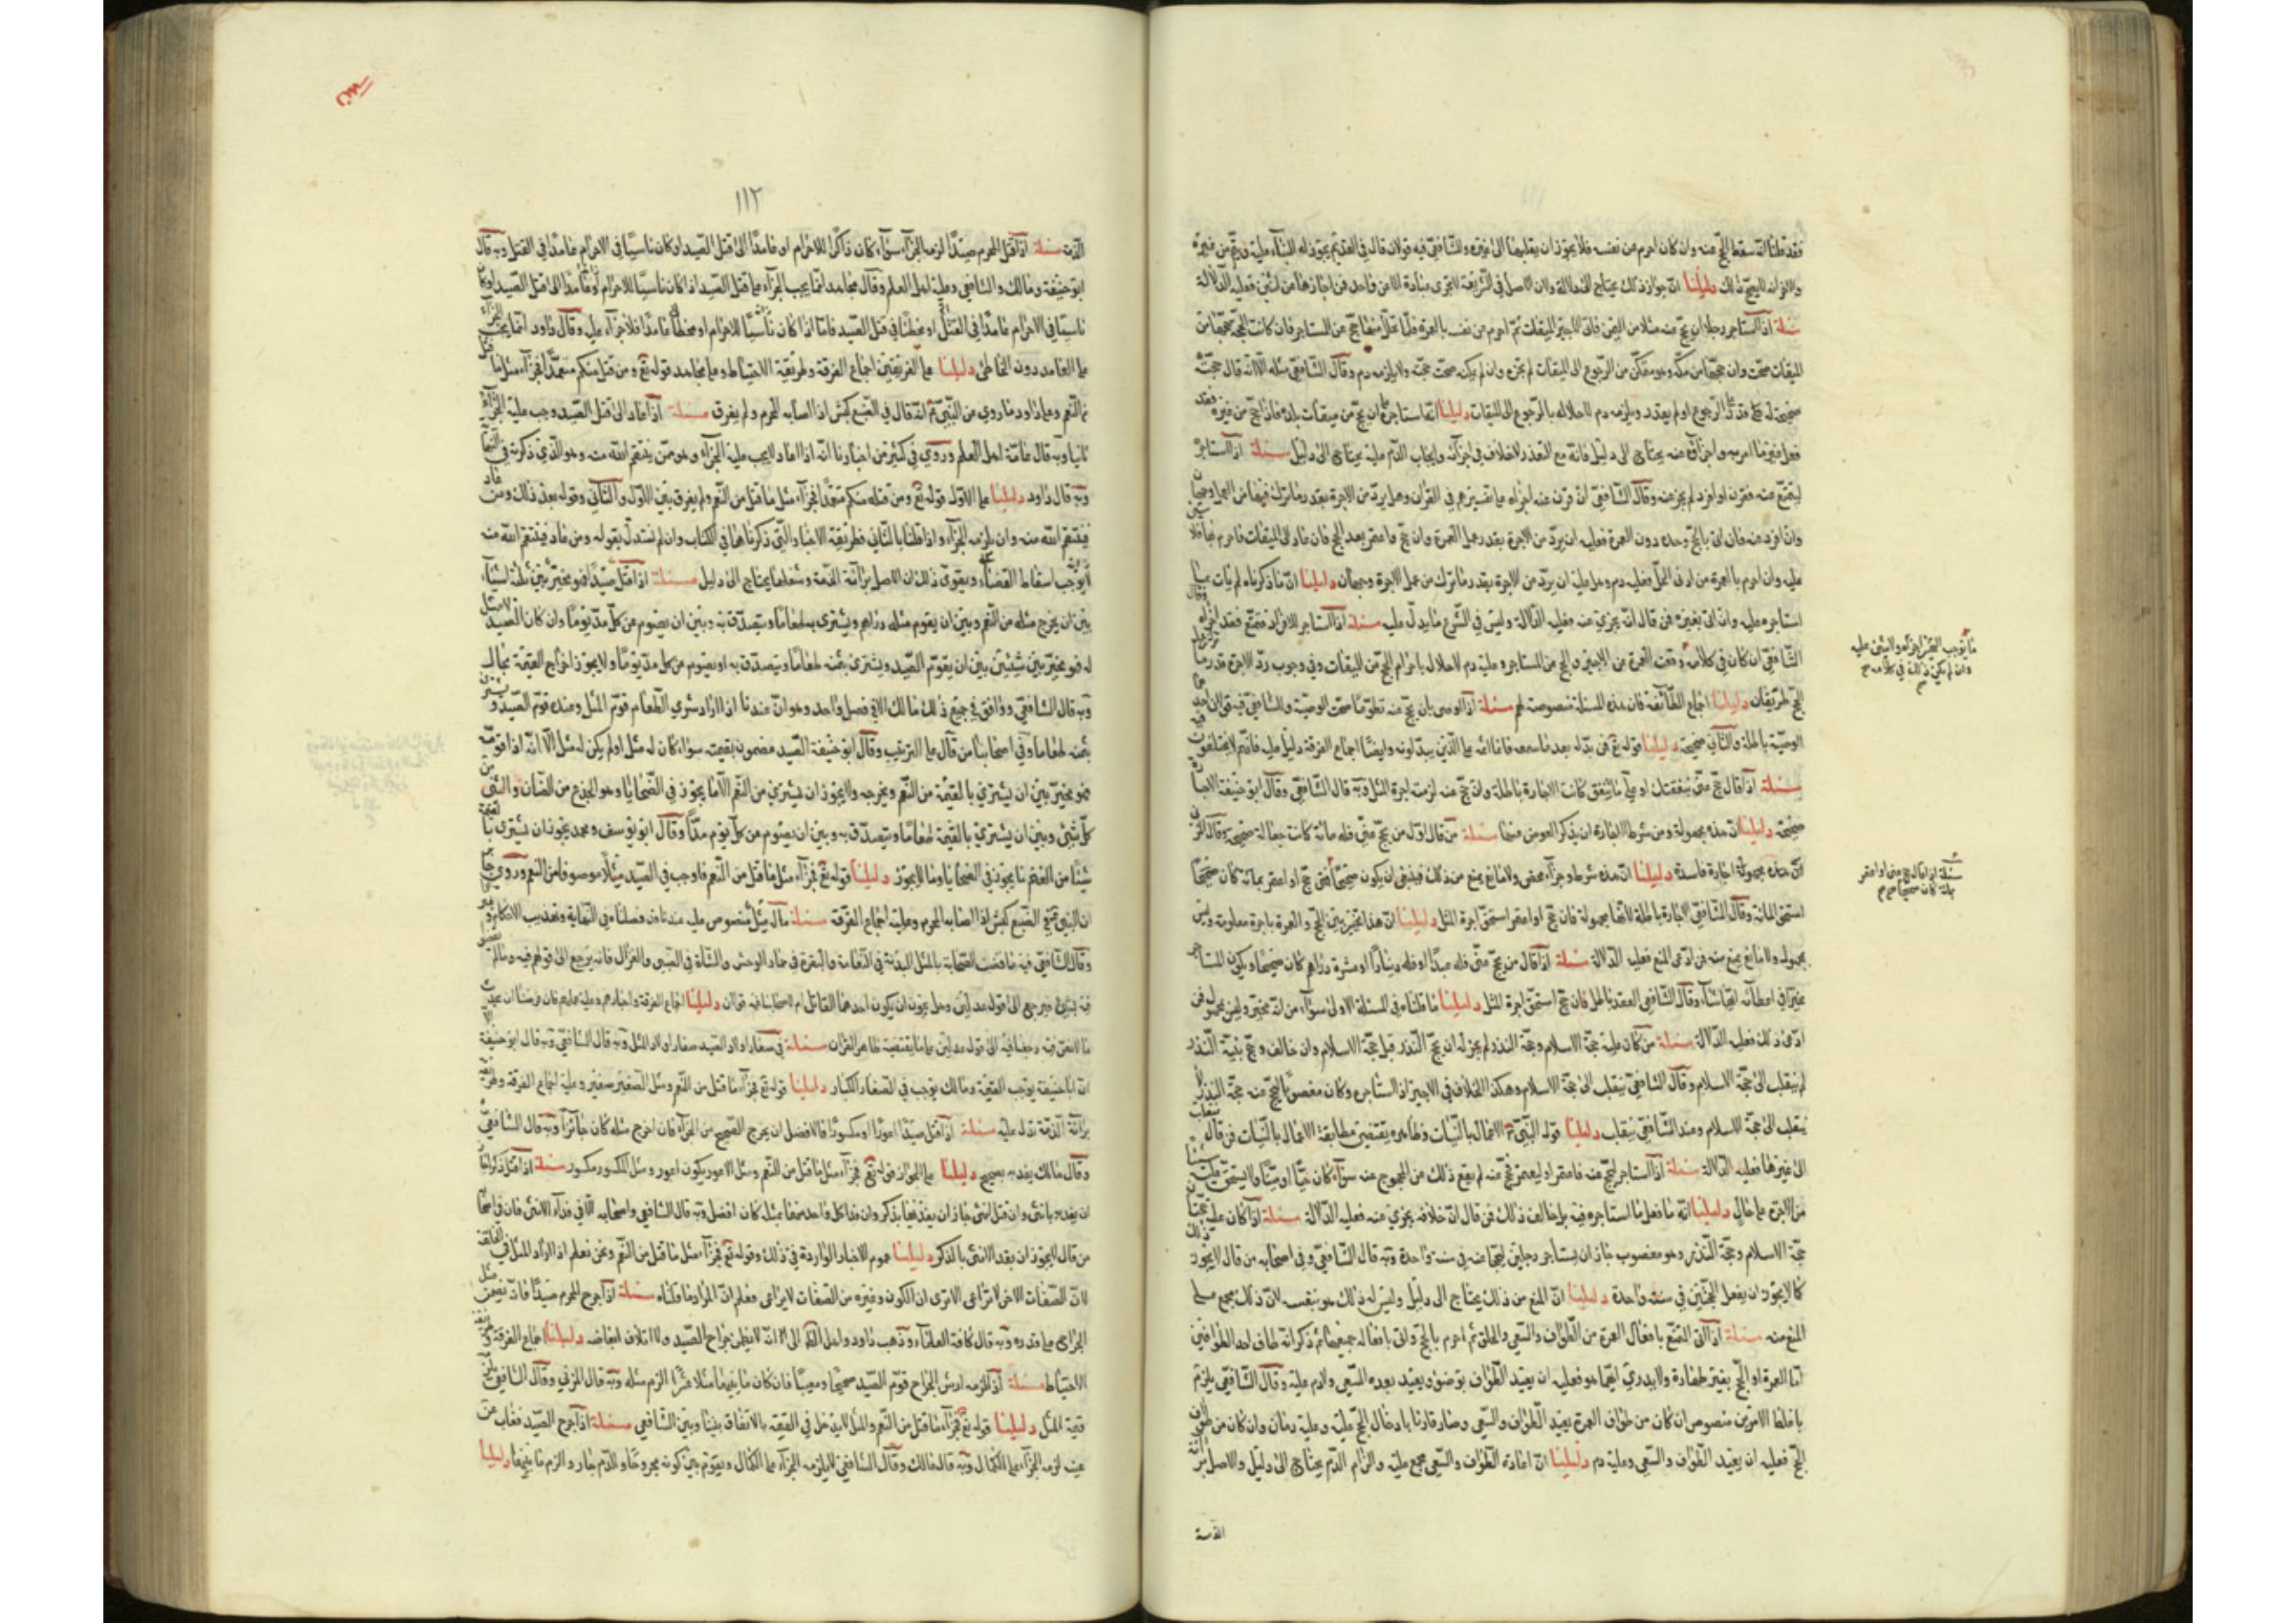 فقد قلنا انه سقط الحج عنه وان كان احرم عن نفسه فلا يجوز ان يقلبها الى غيره وللشافعي فيه قولان قال في القديم يجوز له البناء عليه فيتم عن غيره
والاخر انه لا يصح ذلك دليلنا ان جواز ذلك يحتاج الى دلالة ولان الاصل في الشريعة الا تجزى عبادة الا من فاحد فمن اجازها من اثنين فعليه الدلالة
مسئلة اذا استاجر رجلا ان يحج عنه مثلا من اليمن فاتى الاجير الميقات ثم احرم عن نفسه بالعمرة فلما تحلل منها حج عن المستاجر فان كانت الحجة من
الميقات صحت وان حج من مكة وهو متمكن من الرجوع الى الميقات لم تجزه وان لم يمكنه صحت حجته ولا يلزمه دم وقال الشافعي مثله الا انه قال حجته
صحيحة قدر على الرجوع او لم يقدر ويلزمه دم لاخلاله بالرجوع الى الميقات دليلنا انه استاجره على ان يحج من ميقات بلده فاذا حج من غيره فقد
فعل غير ما امر به واجزائه عنه يحتاج الى دليل فانه مع التعذر لا خلاف في اجزائه وايجاب الدم عليه يحتاج الى دليل مسئلة اذا استاجره
ليتمتع عنه فقرن او افرد لم يجز عنه وقال الشافعي ان قرن عنه اجزاه
وان افرد عنه فان اتى بالحج وحده دون العمرة فعليه ان يرد من الاجرة بقدر عمل العمرة وان حج واعتمر بعد الحج فان عاد الى الميقات فاحرم بها فلا
عليه وان احرم بالعمرة من ادنى الحل فعليه دم وهل عليه ان يرد من الاجرة بقدر ما ترك من عمل الاجرة وجهان دليلنا ان ما ذكرناه لم يات بما
استاجره عليه وان اتى بغيره فمن قال انه يجزي عنه فعليه الدلالة وليس في الشرع ما يدل عليه مسئلة اذا استاجر للافراد فتمتع فقد اجزاه وقال
الشافعي ان كان في كلامه وقعت العمرة عن الاجير والحج عن المستاجر وعليه دم لاخلاله باحرام الحج من الميقات وفي وجوب رد الاجرة قدر ما
الحج طريقان دليلنا اجماع الطائفة فان هذه المسئلة منصوصة لهم مسئلة اذا اوصى بان يحج عنه تطوعا صحت الوصية وللشافعي فيه قولان احدهما
الوصية باطلة والثاني صحيحة دليلنا قوله تع فمن بدله بعد ما سمعه فانما اثمه على الذين يبدلونه وايضا اجماع الفرقة دليل عليه فانهم لا يختلفون فيه
مسئلة اذا قال حج عني بنفقتك او على ما تنفق كانت الاجارة باطلة وان حج عنه لزمته اجرة المثل وبه قال الشافعي وقال ابو حنيفة الاجارة
صحيحة دليلنا ان هذه مجهولة ومن شرط الاجارة ان يذكر العوض منها مسئلة من قال اول من يحج عني فله مائة كانت جعالة صحيحة وقال المزني
ان هذه مجهولة اجارة فاسدة دليلنا ان هذه شرط وجزاء محض ولا مانع يمنع من ذلك فينبغي ان يكون صحيحا حج او اعتمر بمائة كان صحيحا
استحق المائة وقال الشافعي الاجارة باطلة لانها مجهولة فان حج او اعتمر استحق اجرة المثل دليلنا ان هذا تخيير بين الحج والعمرة باجرة معلومة وليس
بمجهول ولا مانع يمنع منه فمن ادعى المنع فعليه الدلالة مسئلة اذا قال من حج عني فله عبد او فله دينار او عشرة دراهم كان صحيحا ويكون المستاجر
مخيرا في اعطائه ايها شاء وقال الشافعي العقد باطل فان حج استحق اجرة المثل دليلنا ما قلناه في المسئلة الاولى سواء من انه مخير وليس بمجهول فمن
ادعى ذلك فعليه الدلالة مسئلة من كان عليه حجة الاسلام وحجة النذر لم يجز له ان يحج النذر قبل حجة الاسلام وان خالف وحج بنية النذر
لم ينقلب الى حجة الاسلام وقال الشافعي ينقلب الى حجة الاسلام وهكذا الخلاف في الاجير اذا استاجره وكان معضوبا ليحج عنه حجة النذر لا
ينقلب الى حجة الاسلام وعند الشافعي ينقلب دليلنا قوله النبي الاعمال بالنيات وظاهره يقتضي مطابقة الاعمال بالنيات فمن قال ينقلب
الى غيرها فعليه الدلالة مسئلة اذا استاجر ليحج عنه فاعتمر او ليعتمر فحج عنه لم يقع ذلك عن المحجوج عنه سواء كان حيا او ميتا ولا يستحق شيئا
من الاجرة على حال دليلنا انه ما فعل ما استاجره فيه بل خالف ذلك فمن قال ان خلافه يجزي عنه فعليه الدلالة مسئلة اذا كان عليه حجتان
حجة الاسلام وحجة النذر وهو معضوب جاز ان يستاجر رجلين ليحجا عنه في سنة واحدة وبه قال الشافعي وفي اصحابه من قال لا يجوز ذلك
كما لا يجوز ان يفعل الحجتين في سنة واحدة دليلنا ان المنع من ذلك يحتاج الى دليل وليس له ذلك هو بنفسه لان ذلك مجمع على
المنع منه مسئلة اذا اتى المتمتع بافعال العمرة من الطواف والسعي والحلق ثم احرم بالحج واتى بافعاله جميعها ثم ذكر انه طاف احد الطوافين
اما العمرة او الحج بغير طهارة ولا يدري ايهما هو فعليه ان يعيد الطواف بوضوء ويعيد بعده السعي ولا دم عليه وقال الشافعي يلزمه
باغلظ الامرين منصوص ان كان من طواف العمرة يعيد الطواف والسعي وصار قارنا بادخال الحج عليه وعليه دمان وان كان من طواف
الحج فعليه ان يعيد الطواف والسعي وعليه دم دليلنا ان اعادة الطواف والسعي مجمع عليه والزام الدم يحتاج الى دليل والاصل براءة
الذمة
مسئلة اذا قال حج عني او اعتمر
بمائة كان صحيحا
١١٢
الذمة مسئلة اذا قتل المحرم صيدا لزمه الجزاء سواء كان ذاكرا للاحرام او عامدا الى قتل الصيد او كان ناسيا في الاحرام عامدا في القتل وبه قال
ابو حنيفة ومالك والشافعي وعليه اهل العلم وقال مجاهد انما يجب الجزاء على قتل الصيد اذا كان ناسيا للاحرام او عامدا الى قتل الصيد او كان
ناسيا في الاحرام عامدا في القتل او مخطئا في قتل الصيد فاما اذا كان للاحرام عامدا فلا جزاء عليه وقال داود انما يجب الجزاء
على العامد دون الخاطئ دليلنا على الفريقين اجماع الفرقة وطريقة الاحتياط وعلى مجاهد قوله تع ومن قتله منكم متعمدا فجزاء مثل ما قتل
من النعم وعلى داود ما روي عن النبي انه قال في الضبع كبش اذا اصابه المحرم ولم يفرق مسئلة اذا عاد الى قتل الصيد وجب عليه الجزاء
ثانيا وبه قال عامة اهل العلم وروي في كثير من اخبارنا انه اذا عاد لا يجب عليه الجزاء وهو ممن ينتقم الله منه وهو الذي ذكرته في النهاية
وبه قال داود دليلنا على الاول قوله تع ومن قتله منكم متعمدا فجزاء مثل ما قتل من النعم ولم يفرق بين الاول والثاني وقوله بعد ذلك ومن عاد
فينتقم الله منه وان يلزمه الجزاء واذا قلنا بالثاني فطريقه الاخبار التي ذكرناها في الكتاب وان لم نستدل بقوله ومن عاد فينتقم الله منه
لا يوجب اسقاط القضاء ويقوى ذلك ان الاصل براءة الذمة وشغلها يحتاج الى دليل مسئلة اذا قتل صيدا فهو مخير بين ثلثة اشياء
بين ان يخرج مثله من النعم وبين ان يقوم مثله دراهم ويشتري به طعاما ويتصدق به وبين ان يصوم عن كل مد يوما وان كان الصيد لا مثل
له فهو مخير بين شيئين بين ان يقوم الصيد ويشتري بثمنه طعاما ويتصدق به او يصوم عن كل مد يوما ولا يجوز اخراج القيمة بحال
وبه قال الشافعي ووافق في جميع ذلك مالك الا في فصل واحد وهو ان عندنا اذا اراد شري الطعام قوم المثل وعنده قوم الصيد ويشتري
بثمنه طعاما وفي اصحابنا من قال على الترتيب وقال ابو حنيفة الصيد مضمون بقيمته سواء كان له مثل او لم يكن له مثل الا انه اذا قومه
فهو مخير بين ان يشتري بالقيمة من النعم ويخرجه ولا يجوز ان يشتري من النعم الا ما يجوز في الضحايا وهو الجذع من الضان والثني من
كل شيء وبين ان يشتري بالقيمة طعاما ويتصدق به وبين ان يصوم عن كل يوم مدا وقال ابو يوسف ومحمد يجوز ان يشتري بالقيمة
شيئا من الغنم ما يجوز في الضحايا وما لا يجوز دليلنا قوله تع فجزاء مثل ما قتل من النعم فاوجب في الصيد مثلا موصوفا من النعم وروي
ان النبي في الضبع كبش اذا اصابه المحرم وعليه اجماع الفرقة مسئلة ما له مثل منصوص عليه عندنا قد فصلناه في النهاية وتهذيب الاحكام
وقال الشافعي فيه ما قضت الصحابة بالمثل البدنة في النعامة والبقرة في حمار الوحش والشاة في الضبي والغزال فانه يرجع الى قولهم فيه وما لم
فيه فيرجع الى قول عدلين وهل يجوز ان يكون احدهما القاتل ام لا لاصحابنا فيه قولان دليلنا اجماع الفرقة واخبارهم
ما لا نص فيه رجعنا فيه الى قول عدلين على ما يقتضيه ظاهر القران مسئلة في صغار اولاد الصيد صغار اولاد المثل وبه قال الشافعي وبه قال ابو حنيفة الا
ان ابا حنيفة يوجب القيمة ومالك يوجب في الصغار الكبار دليلنا قوله تع فجزاء مثل ما قتل من النعم ومثل الصغير صغير وعليه اجماع الفرقة وطريقة
براءة الذمة تدل عليه مسئلة اذا قتل صيدا اعورا او مكسورا فالافضل ان يخرج الصحيح من الجزاء فان اخرج مثله كان جائزا وبه قال الشافعي
وقال مالك يفديه بصحيح دليلنا على الجواز قوله تع فجزاء مثل ما قتل من النعم ومثل الاعور يكون اعور ومثل المكسور مكسور مسئلة اذا قتل ذكرا جاز
ان يفديه بانثى وان قتل انثى جاز ان يفديها بذكر وان فدا كل واحد منهما بمثله كان افضل وبه قال الشافعي واصحابه الا في فداء الانثى فان في اصحابه
من قال لا يجوز ان يفدا الانثى بالذكر دليلنا عموم الاخبار الواردة في ذلك وقوله تع فجزاء مثل ما قتل من النعم ونحن نعلم انه اراد المثل في الخلقة
لان الصفات الاخر لا تراعى الا ترى ان اللون وغيره من الصفات لا يراعى فعلم ان المراد ما قلناه مسئلة اذا جرح المحرم صيدا فانه يضمن
الجراح على قدره وبه قال كافة العلماء وذهب داود واهل الظاهر الى انه لا يضمن جراح الصيد ولا اتلاف ابعاضه دليلنا اجماع الفرقة وطريقة
الاحتياط مسئلة اذا لزمه ارش الجراح قوم الصيد صحيحا ومعيبا فان كان ما بينهما مثلا عشرا الزم مثله وبه قال المزني وقال الشافعي
قيمة المثل دليلنا قوله تع فجزاء مثل ما قتل من النعم والمثل لا يدخل في القيمة بالاتفاق بيننا وبين الشافعي مسئلة اذا جرح الصيد فغاب عن
عينه لزمه الجزاء على الكمال وبه قال مالك وقال الشافعي لا يلزمه الجزاء على الكمال ويقوم بين كونه مجروحا والدم جار والزم ما بينهما دليلنا